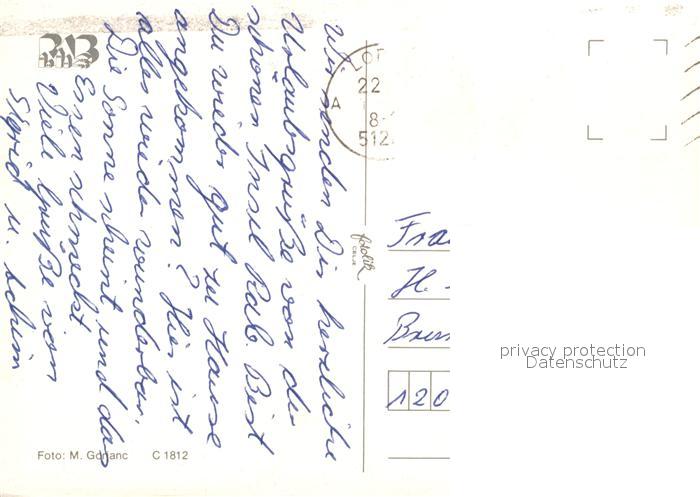 Wir senden Dir herzliche
Urlaubsgrüße von der
schönen Insel Rab. Bist
Du wieder gut zu Hause
angekommen? Hier ist
alles wieder wunderbar.
Die Sonne scheint und das
Essen schmeckt.
Viele Grüße von
Sigrid u. Achim
22
A
8-
512
fotolik
CELJE
Fra
H.
120
privacy protection
Datenschutz
Foto: M. Gorjanc C 1812